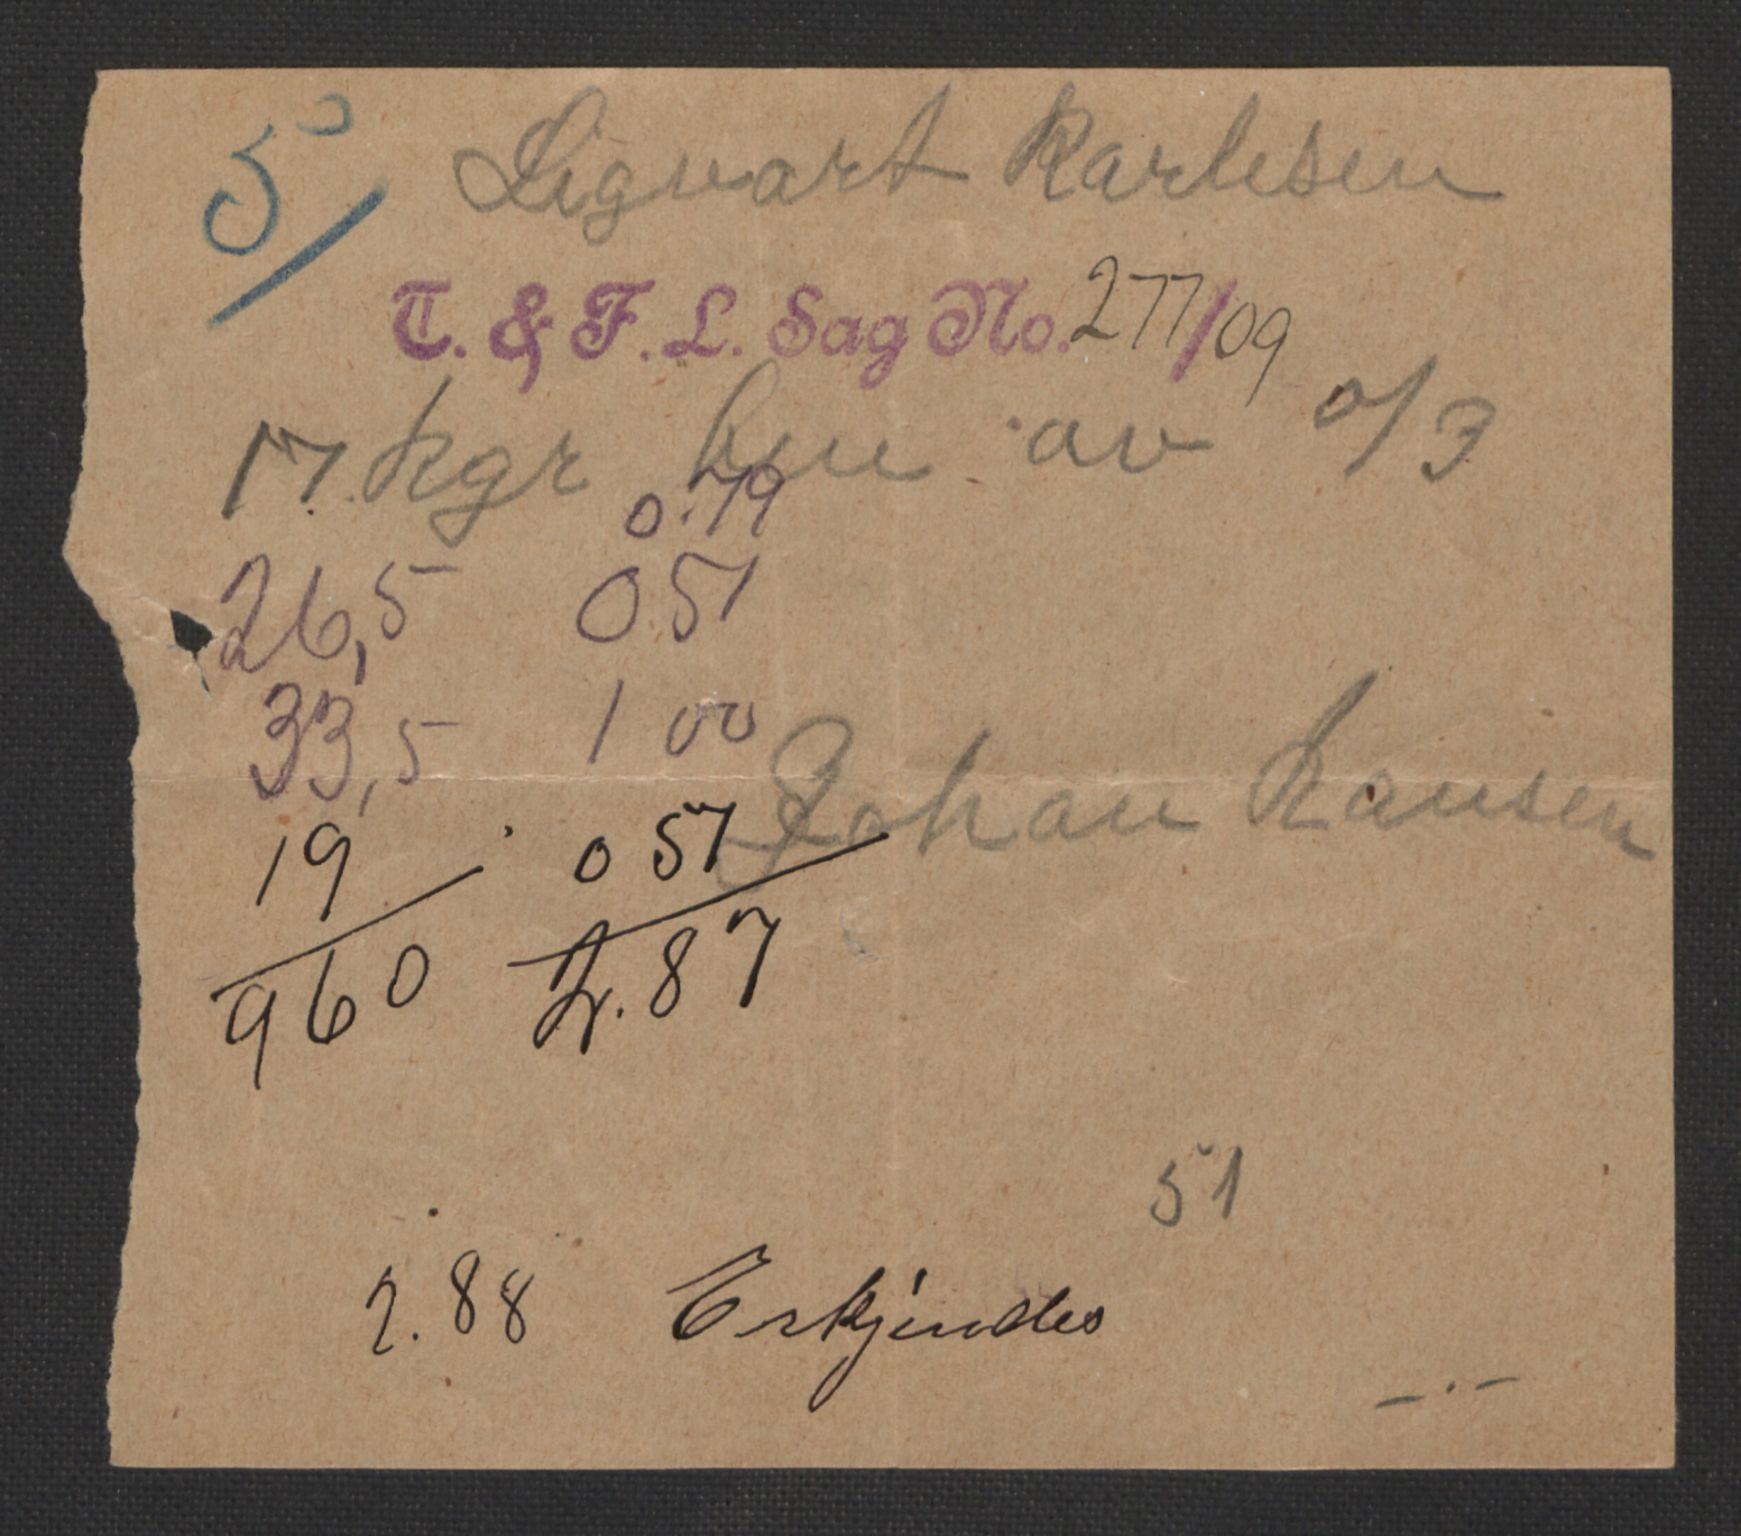 5
Sigvart Karlesen
T. & F. L. Sag No. 277/09
17 kgr hue av o/3
0.79
26,5 0.51
33,5 1 00
Johan Hansen
19 0 57
960 2.87
51
2.88 Erkjendes